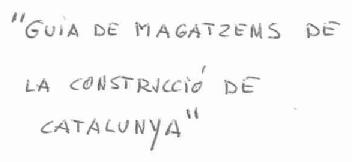 "GUIA DE MAGATZEMS DE
LA CONSTRUCCIÓ DE
CATALUNYA"